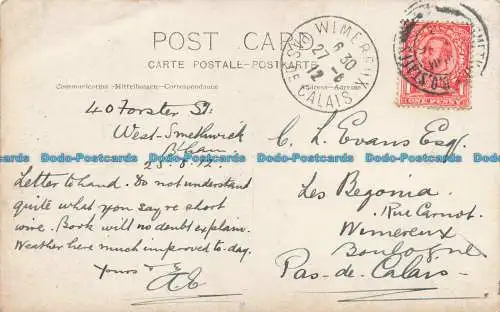 POST CARD
CARTE POSTALE-POSTKARTE
Communication - Mittheilungen - Correspondance
Address - Adresse
WIMEREUX
PAS-DE-CALAIS
6 30
27 -8
12
ONE PENNY
40 Forster St:
West-Smethwick
B'ham
25.8.12.
Letter to hand. Do not understand
quite what you say re short
wire. Book will no doubt explain.
Weather here much improved to-day.
Yours
C. L. Evans Esq.
Les Begonia.
Rue Carnot.
Wimereux
Boulogne
Pas-de-Calais
Dodo-Postcards Dodo-Postcards Dodo-Postcards Dodo-Postcards Dodo-Postcards